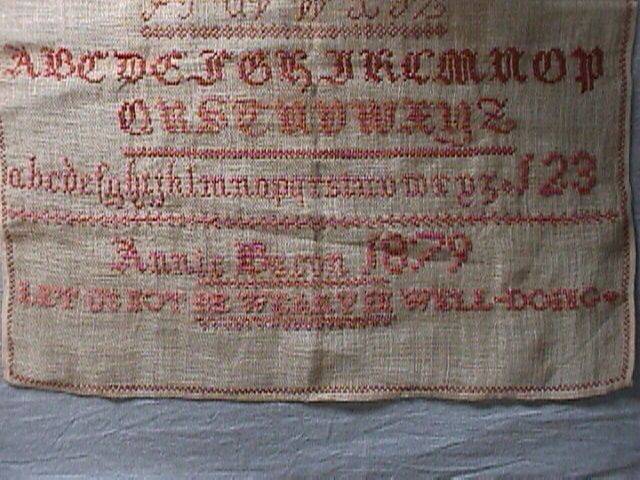 ABCDEFGHIKLMNOP
QRSTUVWXYZ
abcdefghijklmnopqrstuvwxyz. 123
Annie 1879
LET US NOT BE WEARY IN WELL-DOING